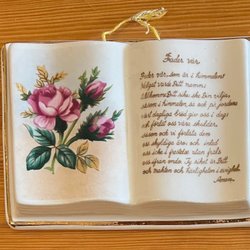 Fader vår
Fader vår, som är i himmelen!
Helgat varde Ditt namn;
tillkomme Ditt rike, ske Din vilja,
såsom i himmelen, så ock på jorden;
vårt dagliga bröd giv oss i dag;
och förlåt oss våra skulder,
såsom ock vi förlåta dem
oss skyldiga äro; och inled
oss icke i frestelse utan fräls
oss ifrån ondo. Ty riket är Ditt
och makten och härligheten i evighet.
Amen.